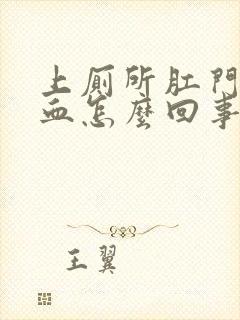 上厕所肛門
血怎麼回事
王翼